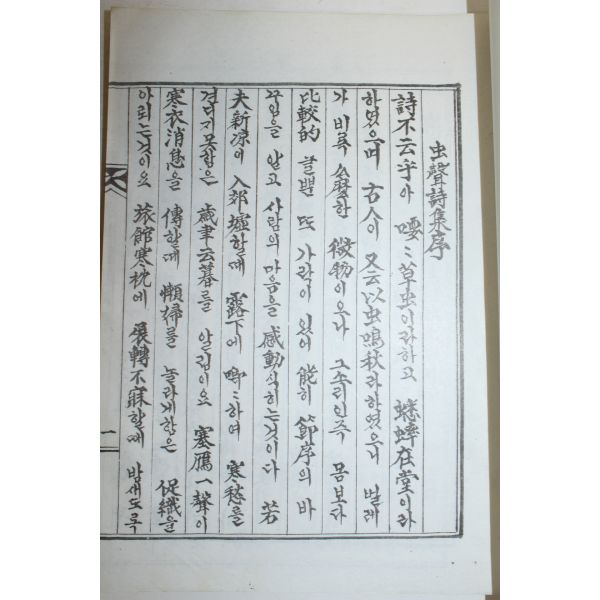 虫聲詩集序
詩不云乎아 喓〻草虫이라하고 蟋蟀在堂이라
하였으며 古人이 又云以虫鳴秋라하였으니 벌레
가 비록 么麽한 微物이오나 그소리인즉 몸보다
比較的 클뿐 또 가락이 있어 能히 節序의 바
뀌임을 알고 사람의 마음을 感動식히는것이다 若
夫新凉이 入郊墟할때 露下에 喞〻하여 寒愁를
견디지못함은 歲聿云暮를 알림이요 塞鴈一聲이
寒衣消息을 傳할때 懶婦를 놀라게함은 促織을
아뢰는것이요 旅館寒枕에 展轉不寐할때 밤새도록
一